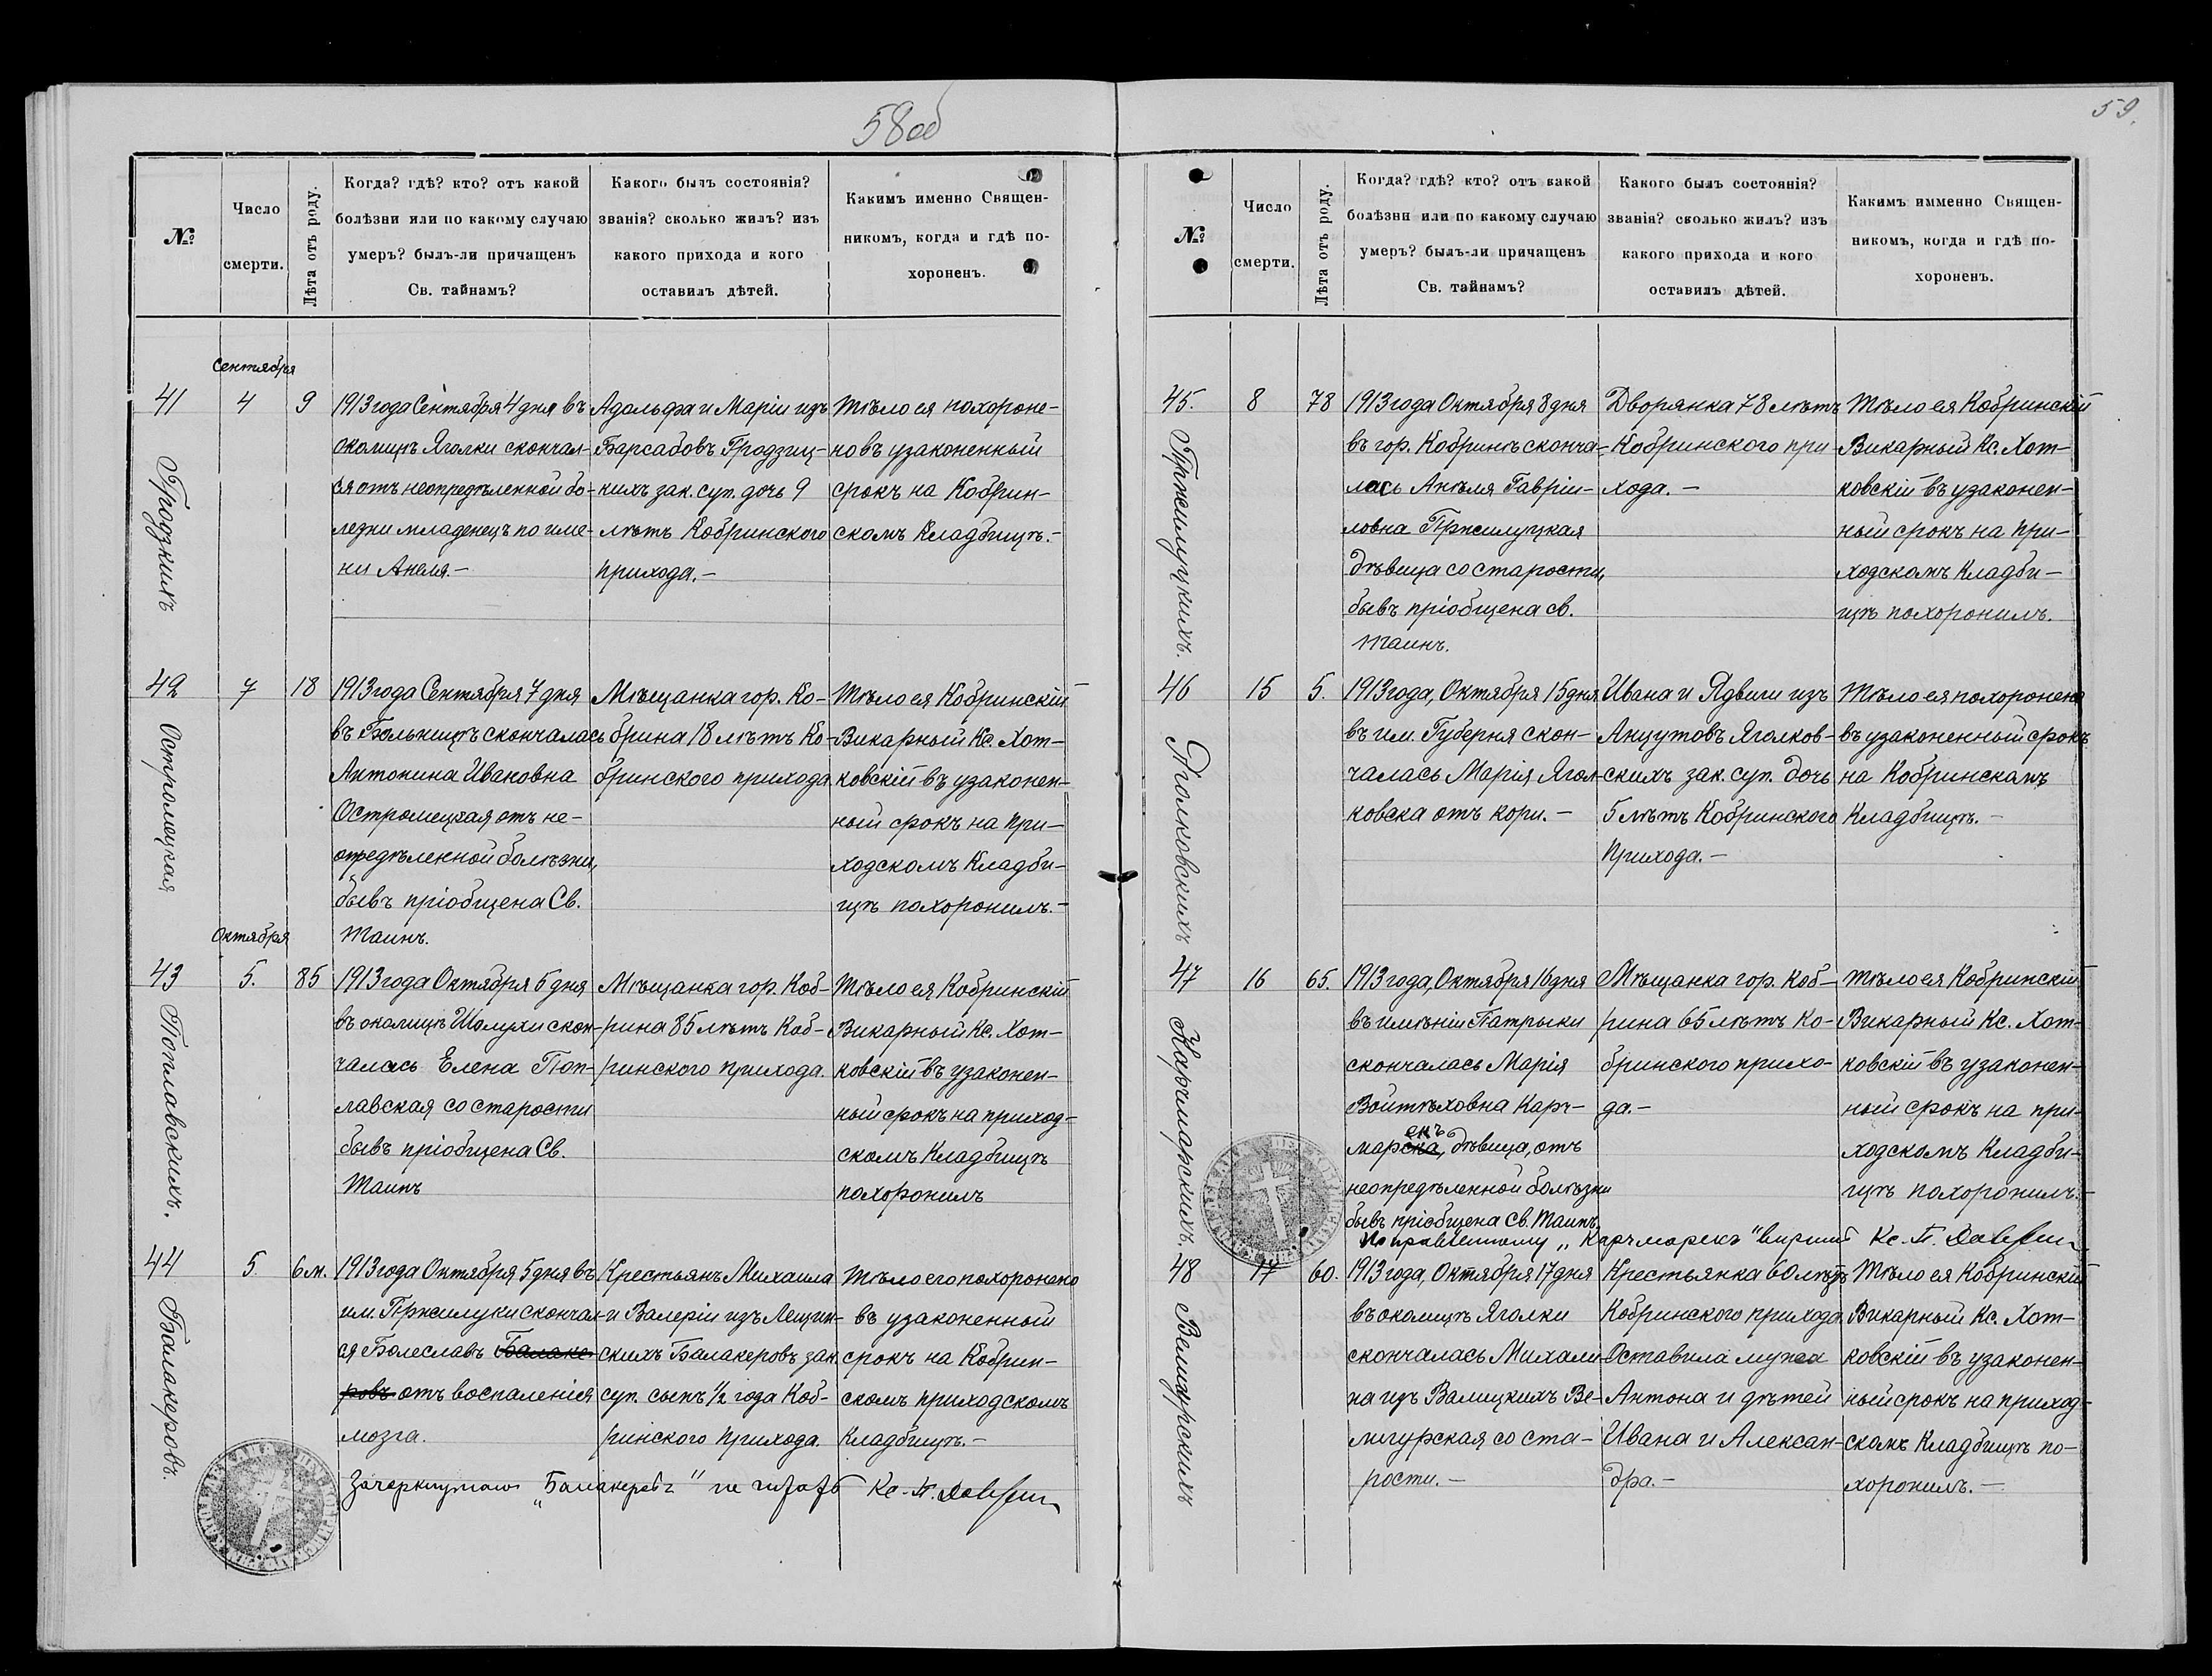 58об
№
Число
смерти.
Лѣта отъ роду.
Когда? гдѣ? кто? отъ какой
болѣзни или по какому случаю
умеръ? былъ-ли причащенъ
Св. тайнамъ?
Какого былъ состоянія?
званія? сколько жилъ? изъ
какого прихода и кого
оставилъ дѣтей.
Какимъ именно Священ-
никомъ, когда и гдѣ по-
хороненъ.
Сентября
41
Гродзкихъ
4
9
1913 года Сентября 4 дня въ
околицѣ Яголки скончал-
ся отъ неопредѣленной бо-
лезни младенецъ по име-
ни Анеля.-
Адольфа и Маріи изъ
Барсабовъ Гродзиц-
кихъ зак. суп. дочь 9
лѣтъ Кобринского
прихода.-
Тѣло ея похороне-
но въ узаконенный
срокъ на Кобрин-
скомъ Кладбищѣ.-
42
Остромецкая
7
18
1913 года Сентября 7 дня
въ Больницѣ скончалась
Антонина Ивановна
Остромецкая отъ не-
опредѣленной болѣзни,
бывъ пріобщена Св.
Таинъ.
Мѣщанка гор. Ко-
брина 18 лѣтъ Ко-
бринского прихода
Тѣло ея Кобринскій
Викарный Кс. Хот-
ковскій въ узаконен-
ный срокъ на при-
ходскомъ Кладби-
щѣ похоронилъ.-
Октября
43
Поплавскихъ.
5.
85
1913 года Октября 5 дня
въ околицѣ Шолухи скон-
чалась Елена Поп-
лавская со старости
бывъ пріобщена Св.
Таинъ
Мѣщанка гор. Коб-
рина 85 лѣтъ Коб-
ринского прихода.
Тѣло ея Кобринскій
Викарный Кс. Хот-
ковскій въ узаконен-
ный срокъ на приход-
скомъ Кладбищѣ
похоронилъ
44
Балакеровъ.
5.
6 м.
1913 года Октября 5 дня въ
им. Пржилуки скончал-
ся Болеславъ Балаке-
ровъ отъ воспаленія
мозга.
Крестьянъ Михаила
и Валеріи изъ Лещин-
скихъ Балакеровъ зак.
суп. сынъ 1/2 года Коб-
ринского прихода.
Тѣло его похоронено
въ узаконенный
срокъ на Кобрин-
скомъ приходскомъ
Кладбищѣ.-
"Балакеровъ" не читать Кс.
59.
№
Число
смерти.
Лѣта отъ роду.
Когда? гдѣ? кто? отъ какой
болѣзни или по какому случаю
умеръ? былъ-ли причащенъ
Св. тайнамъ?
Какого былъ состоянія?
званія? сколько жилъ? изъ
какого прихода и кого
оставилъ дѣтей.
Какимъ имменно Священ-
никомъ, когда и гдѣ по-
хороненъ.
45.
Пржилуцкихъ.
8
78
1913 года Октября 8 дня
въ гор. Кобринѣ сконча-
лась Анѣля Гавріи-
ловна Пржилуцкая
дѣвица со старости,
бывъ пріобщена св.
Таинъ.
Дворянка 78 лѣтъ
Кобринского при-
хода.-
Тѣло ея Кобринскій
Викарный Кс. Хот-
ковскій въ узаконен-
ный срокъ на при-
ходскомъ Кладби-
щѣ похоронилъ.
46
Яголковскихъ
15
5.
1913 года, Октября 15 дня
въ им. Губерня скон-
чалась Марія Ягол-
ковска отъ кори.-
Ивана и Ядвиги изъ
Анцутовъ Яголков-
скихъ зак. суп. дочь
5 лѣтъ Кобринского
Прихода.-
Тѣло ея похоронено
въ узаконенный срокъ
на Кобринскомъ
Кладбищѣ.-
47
Карчмарскихъ.
16
65.
1913 года, Октября 16 дня
въ имѣніи Патрыки
скончалась Марія
Войтѣховна Карч-
екъ
марска, дѣвица, отъ
неопредѣленной болѣзни
бывъ пріобщена Св. Таинъ.
Мѣщанка гор. Коб-
рина 65 лѣтъ Ко-
бринского прихо-
да.-
Тѣло ея Кобринскій
Викарный Кс. Хот-
ковскій въ узаконен-
ный срокъ на при-
ходскомъ Кладби-
щѣ похоронилъ.-
По правленному „Карчмарекъ" вѣрить Кс.
48
Велигурскихъ
17
60.
1913 года, Октября 17 дня
въ околицѣ Яголки
скончалась Михали-
на изъ Валицкихъ Ве-
лигурская со ста-
рости.-
Крестьянка 60 лѣтъ
Кобринского прихода
Оставила мужа
Антона и дѣтей
Ивана и Алексан-
дра.-
Тѣло ея Кобринскій
Викарный Кс. Хот-
ковскій въ узаконен-
ный срокъ на приход-
скомъ Кладбищѣ по-
хоронилъ.-